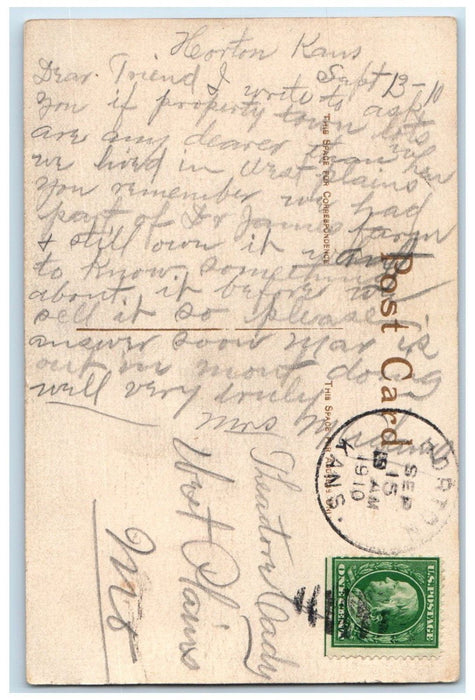 Horton Kans
Sept 13-10
Dear Friend I write to ask
you if property town lots
are any dearer than when
we lived in West Plains
you remember we had
part of Dr James farm
& still own it want
to know something
about it before we
sell it so please
answer soon Max is
out in mont doing
well very truly
Mrs
Theadore Cady
West Plains
Mo
Post Card
THIS SPACE FOR CORRESPONDENCE
THIS SPACE FOR ADDRESS ONLY
HORTON
SEP
15
AM
1910
KANS.
U.S. POSTAGE
ONE CENT